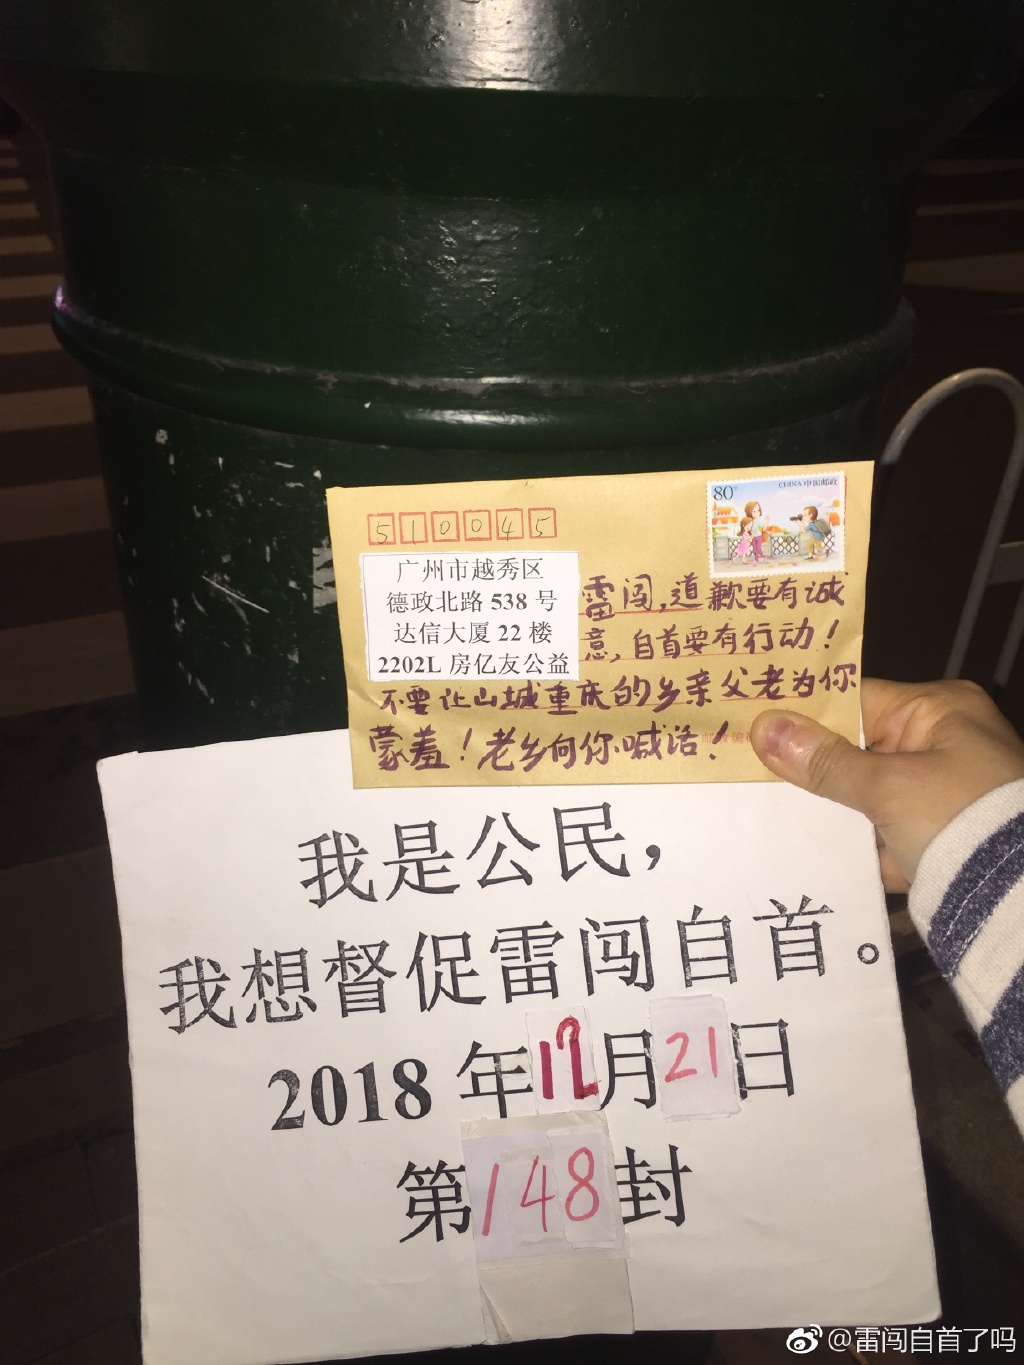 80分
CHINA 中国邮政
510045
广州市越秀区
德政北路 538 号
达信大厦 22 楼
2202L 房亿友公益
雷闯,道歉要有诚
意,自首要有行动!
不要让山城重庆的乡亲父老为你
蒙羞!老乡向你喊话!
邮政编
我是公民,
我想督促雷闯自首。
2018 年12月21日
第148封
@雷闯自首了吗